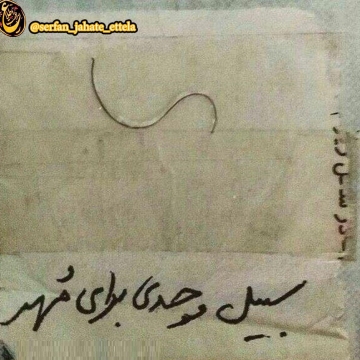 @serfan_jahate_ettela
سبیل موحدی برای مُهر